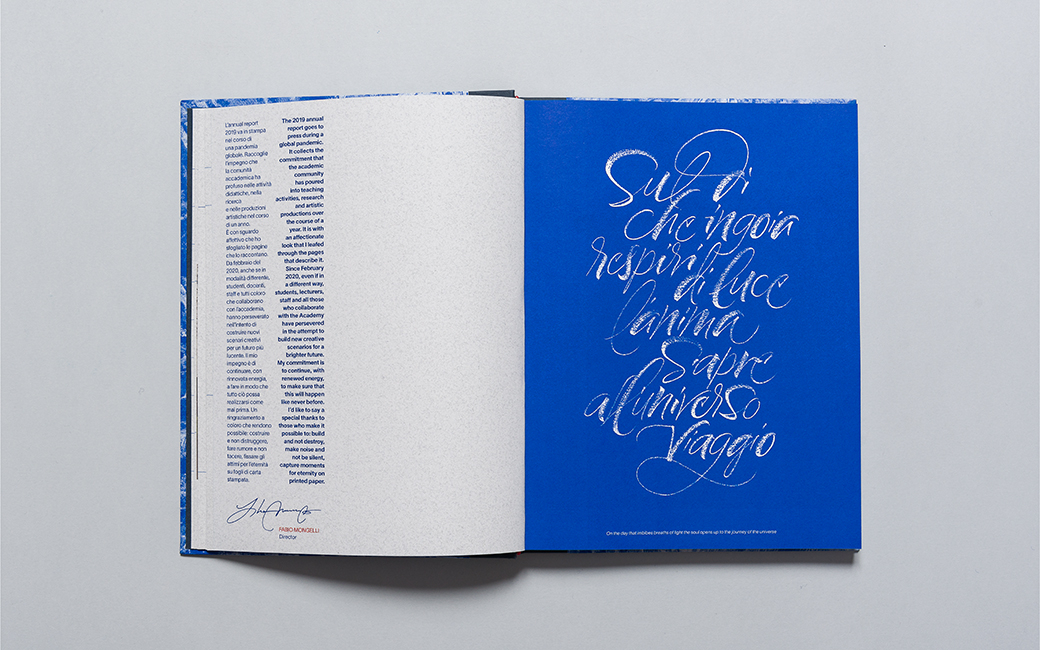 L'annual report
2019 va in stampa
nel corso di
una pandemia
globale. Raccoglie
l'impegno che
la comunità
accademica ha
profuso nelle attività
didattiche, nella
ricerca
e nelle produzioni
artistiche nel corso
di un anno.
È con sguardo
affettivo che ho
sfogliato le pagine
che lo raccontano.
Da febbraio del
2020, anche se in
modalità differente,
studenti, docenti,
staff e tutti coloro
che collaborano
con l'accademia,
hanno perseverato
nell'intento di
costruire nuovi
scenari creativi
per un futuro più
lucente. Il mio
impegno è di
continuare, con
rinnovata energia,
a fare in modo che
tutto ciò possa
realizzarsi come
mai prima. Un
ringraziamento a
coloro che rendono
possibile: costruire
e non distruggere,
fare rumore e non
tacere, fissare gli
attimi per l'eternità
su fogli di carta
stampata.
The 2019 annual
report goes to
press during a
global pandemic.
It collects the
commitment that
the academic
community
has poured
into teaching
activities, research
and artistic
productions over
the course of a
year. It is with
an affectionate
look that I leafed
through the pages
that describe it.
Since February
2020, even if in
a different way,
students, lecturers,
staff and all those
who collaborate
with the Academy
have persevered
in the attempt to
build new creative
scenarios for a
brighter future.
My commitment is
to continue, with
renewed energy,
to make sure that
this will happen
like never before.
I'd like to say a
special thanks to
those who make it
possible to: build
and not destroy,
make noise and
not be silent,
capture moments
for eternity on
printed paper.
FABIO MONGELLI
Director
Sul Dì
che ingoia
respiri
di luce
l'anima
s'apre
all'universo
Viaggio
On the day that imbibes breaths of light the soul opens up to the journey of the universe